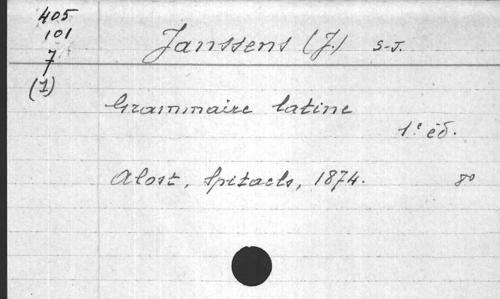 405
101
7
(1)
Janssens (J.) S-J.
Grammaire latine
1e éd.
Alost, Spitaels, 1874. 8o